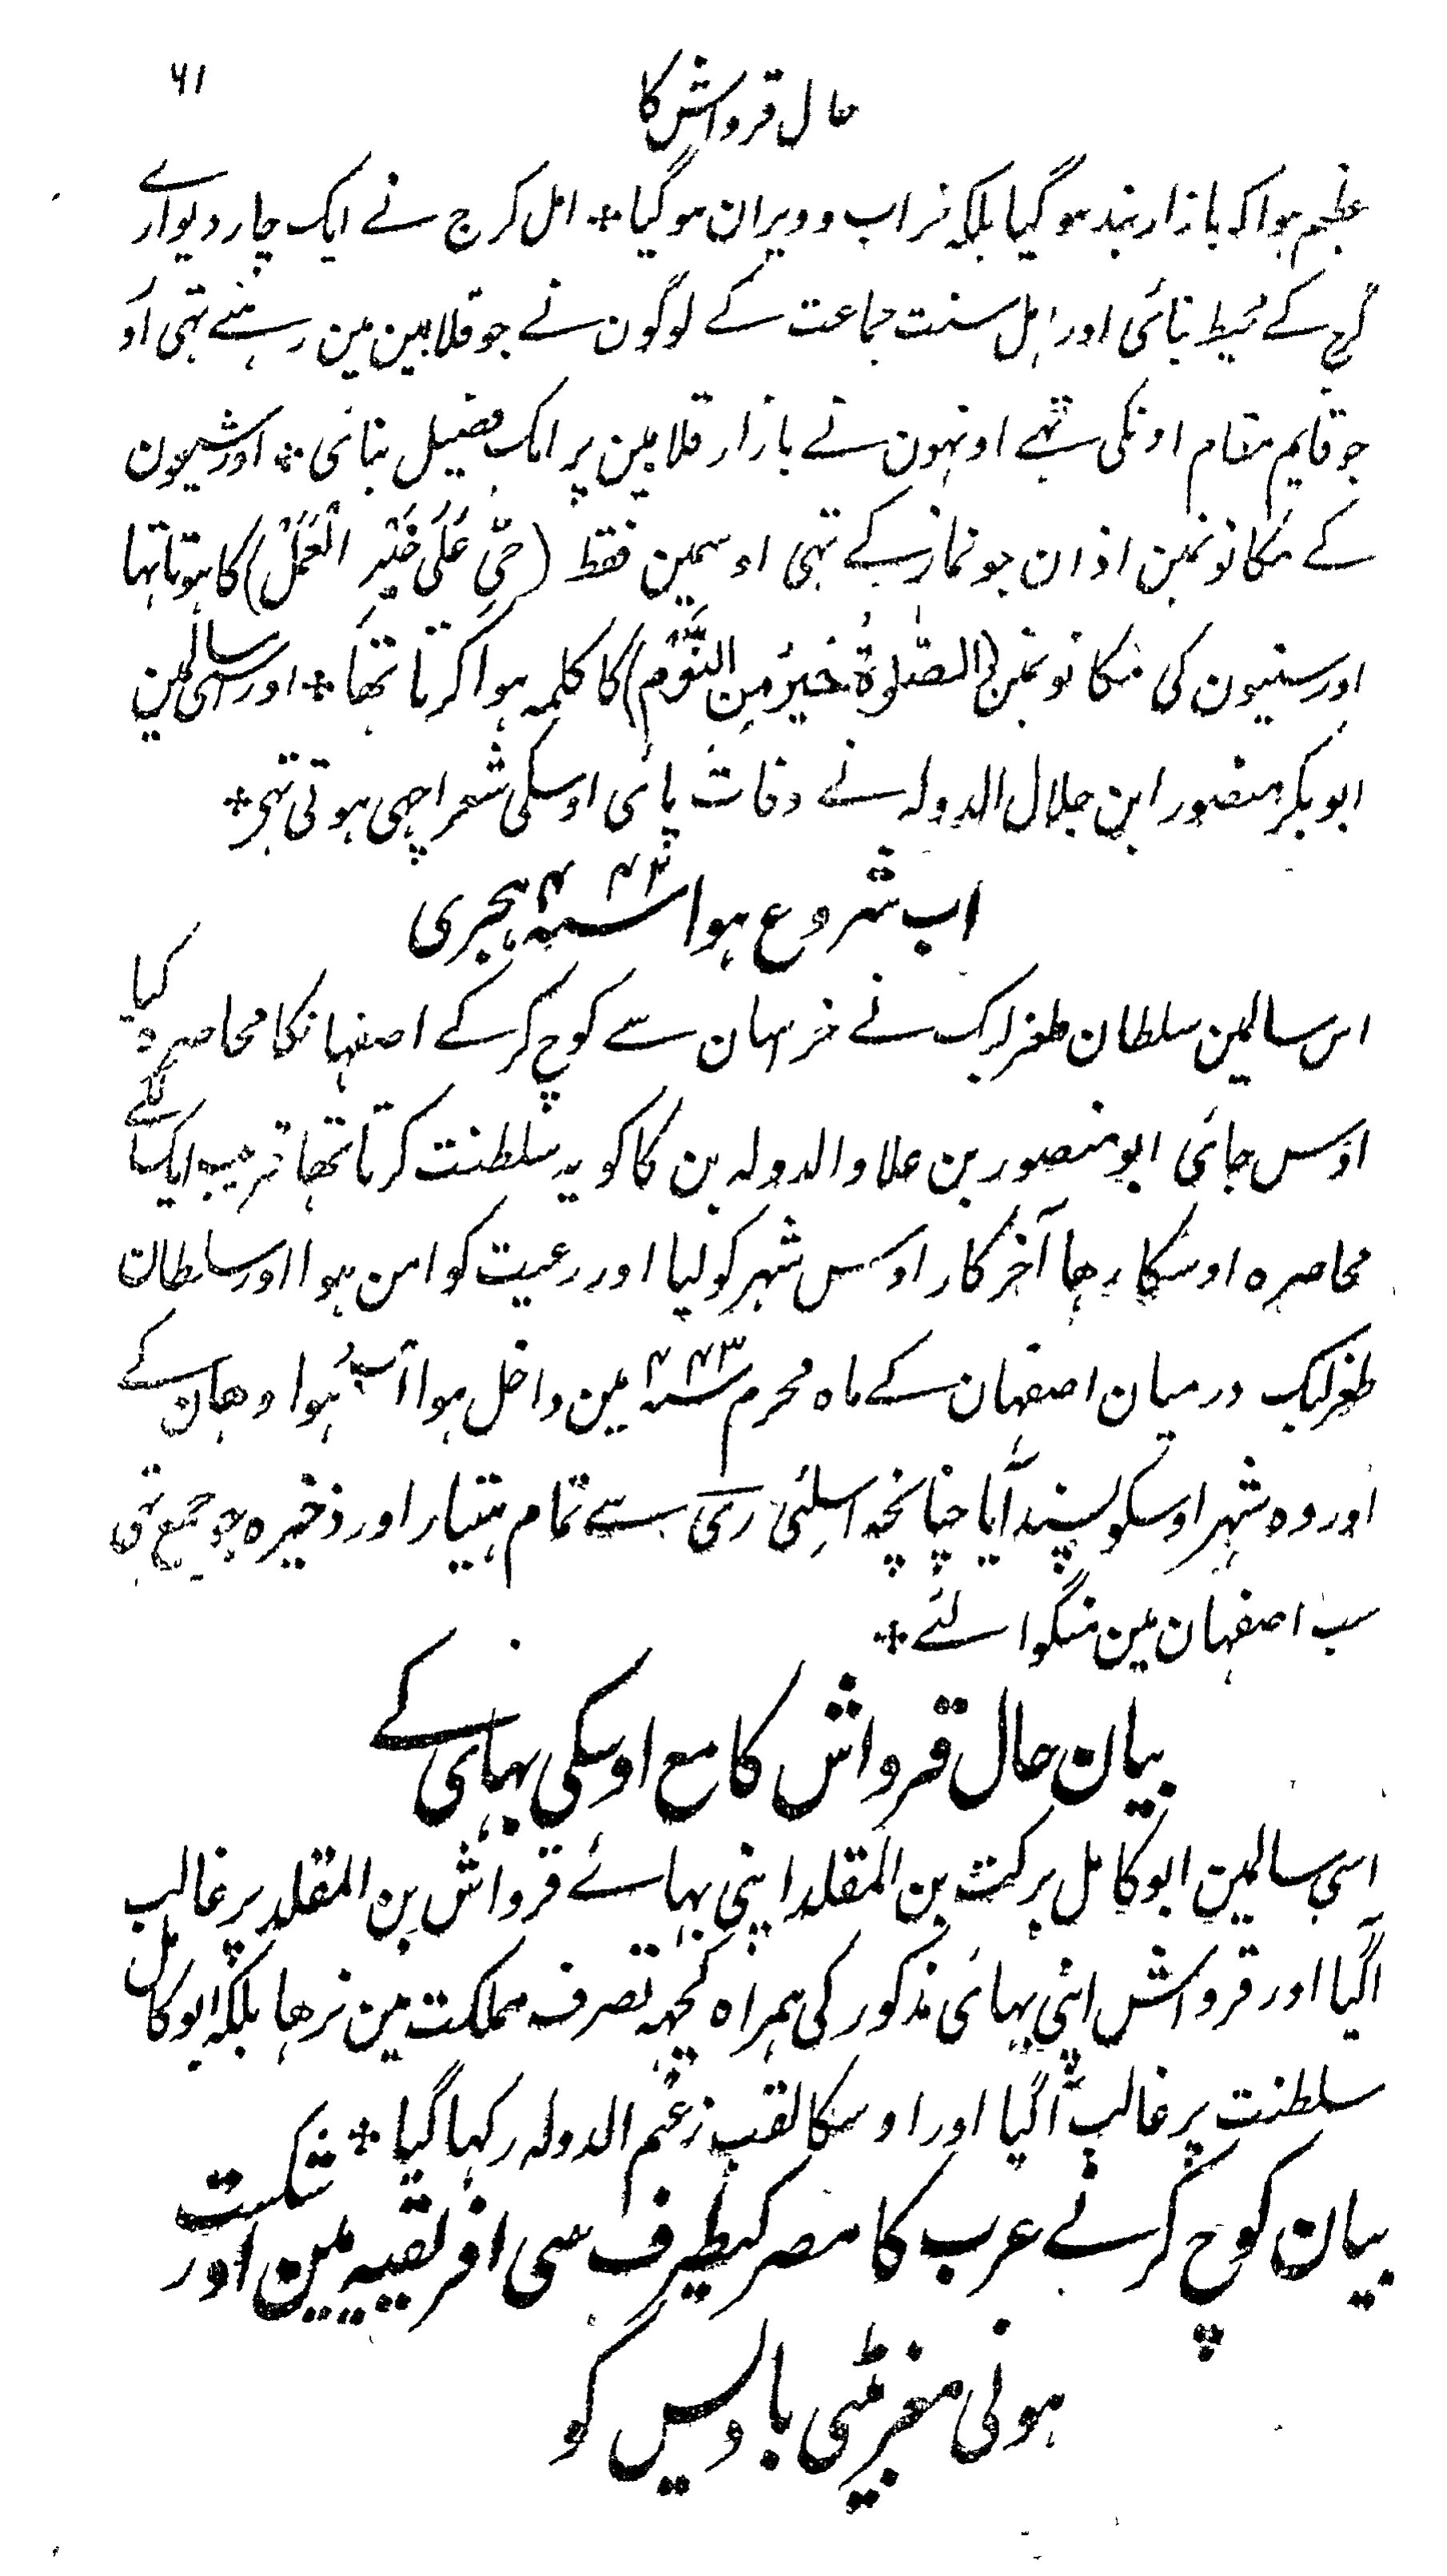 حال قرواش کا
۶۱
عظیم ہوا کہ بازار بند ہو گیا بلکہ خراب و ویران ہو گیا * اہل کرج نے ایک چار دیوارے
کرج کے محیط بنائی اور اہل سنت جماعت کے لوگون نے جو قلابین مین رہنے تہی اور
جو قایم مقام اونکی تہے اونہون نے بازار قلابین پر ایک فصیل بنائی * اور شیعون
کے مکانونمین اذان جو نماز کے تہی اوسمین فقط (حَیَّ عَلٰی خَیْرِ الْعَمَلْ) کا ہوتا تہا
اور سنیون کی مکانونمین (الصَّلٰوۃُ خَیرٌ مِنَ النَّوْمِ) کا کلمہ ہوا کرتا تھا * اور اسی سالمین
ابوبکر منصور ابن جلال الدولہ نے وفات پائی اوسکی شعر اچھی ہوتی تہی *
اب شروع ہوا سنہ ۴۴۳ ہجری
اس سالمین سلطان طغرلبک نے خراسان سے کوچ کر کے اصفہانکا محاصرہ کیا
اوس جائی ابو منصور بن علاو الدولہ بن کاکویہ سلطنت کرتا تھا قریب ایکسال کے
محاصرہ اوسکا رھا آخر کار اوس شہر کو لیا اور رعیت کو امن ہوا اور سلطان
طغرلبک درمیان اصفہان کے ماہ محرم سنہ ۴۴۳ مین داخل ہوا آب و ہوا وھان کے
اور وہ شہر اوسکو پسند آیا چنانچہ اسلئی ری سے تمام ہتیار اور ذخیرہ جو جمع تہی
سب اصفہان مین منگوا لئے *
بیان حال قرواش کا مع اوسکی بہائی کے
اسی سالمین ابو کامل برکت بن المقلد اپنی بہائے قرواش بن المقلد پر غالب
آگیا اور قرواش اپنی بہائی مذکور کی ہمراہ کچہہ تصرف مملکت مین نرھا بلکہ ابو کامل
سلطنت پر غالب آگیا اور اوسکا لقب زعیم الدولہ رکہا گیا *
بیان کوچ کرنے عرب کا مصر کیطرف سی افریقیہ مین اور شکست
ہونی مغربیٹی بادیس کو